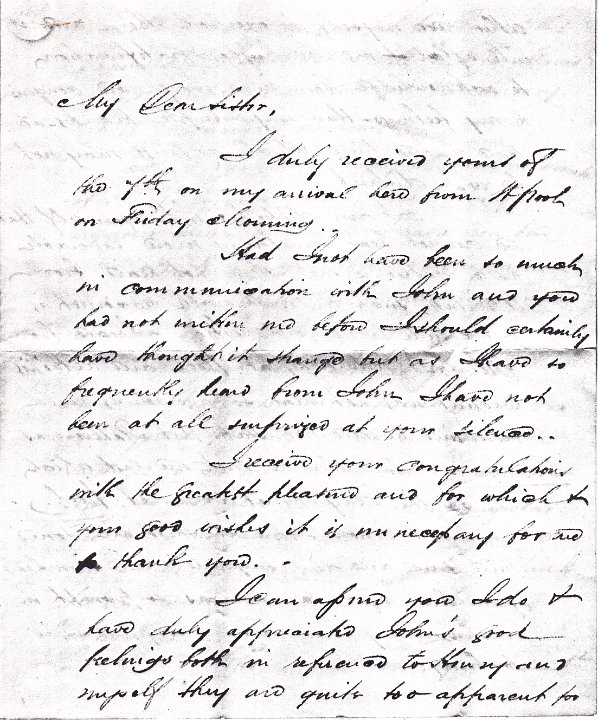 My Dear Sister,
I duly received yours of
the 7th on my arrival here from H'pool
on Friday Morning..
Had I not have been so much
in communication with John and you
had not written me before I should certainly
have thought it strange but as I have so
frequently heard from John I have not
been at all surprized at your silence..
I receive your congratulations
with the greatest pleasure and for which &
your good wishes it is unnecessary for me
to thank you. -
I can assure you I do &
have duly appreciated John's good
feelings both in reference to Henry and
myself they are quite too apparent to